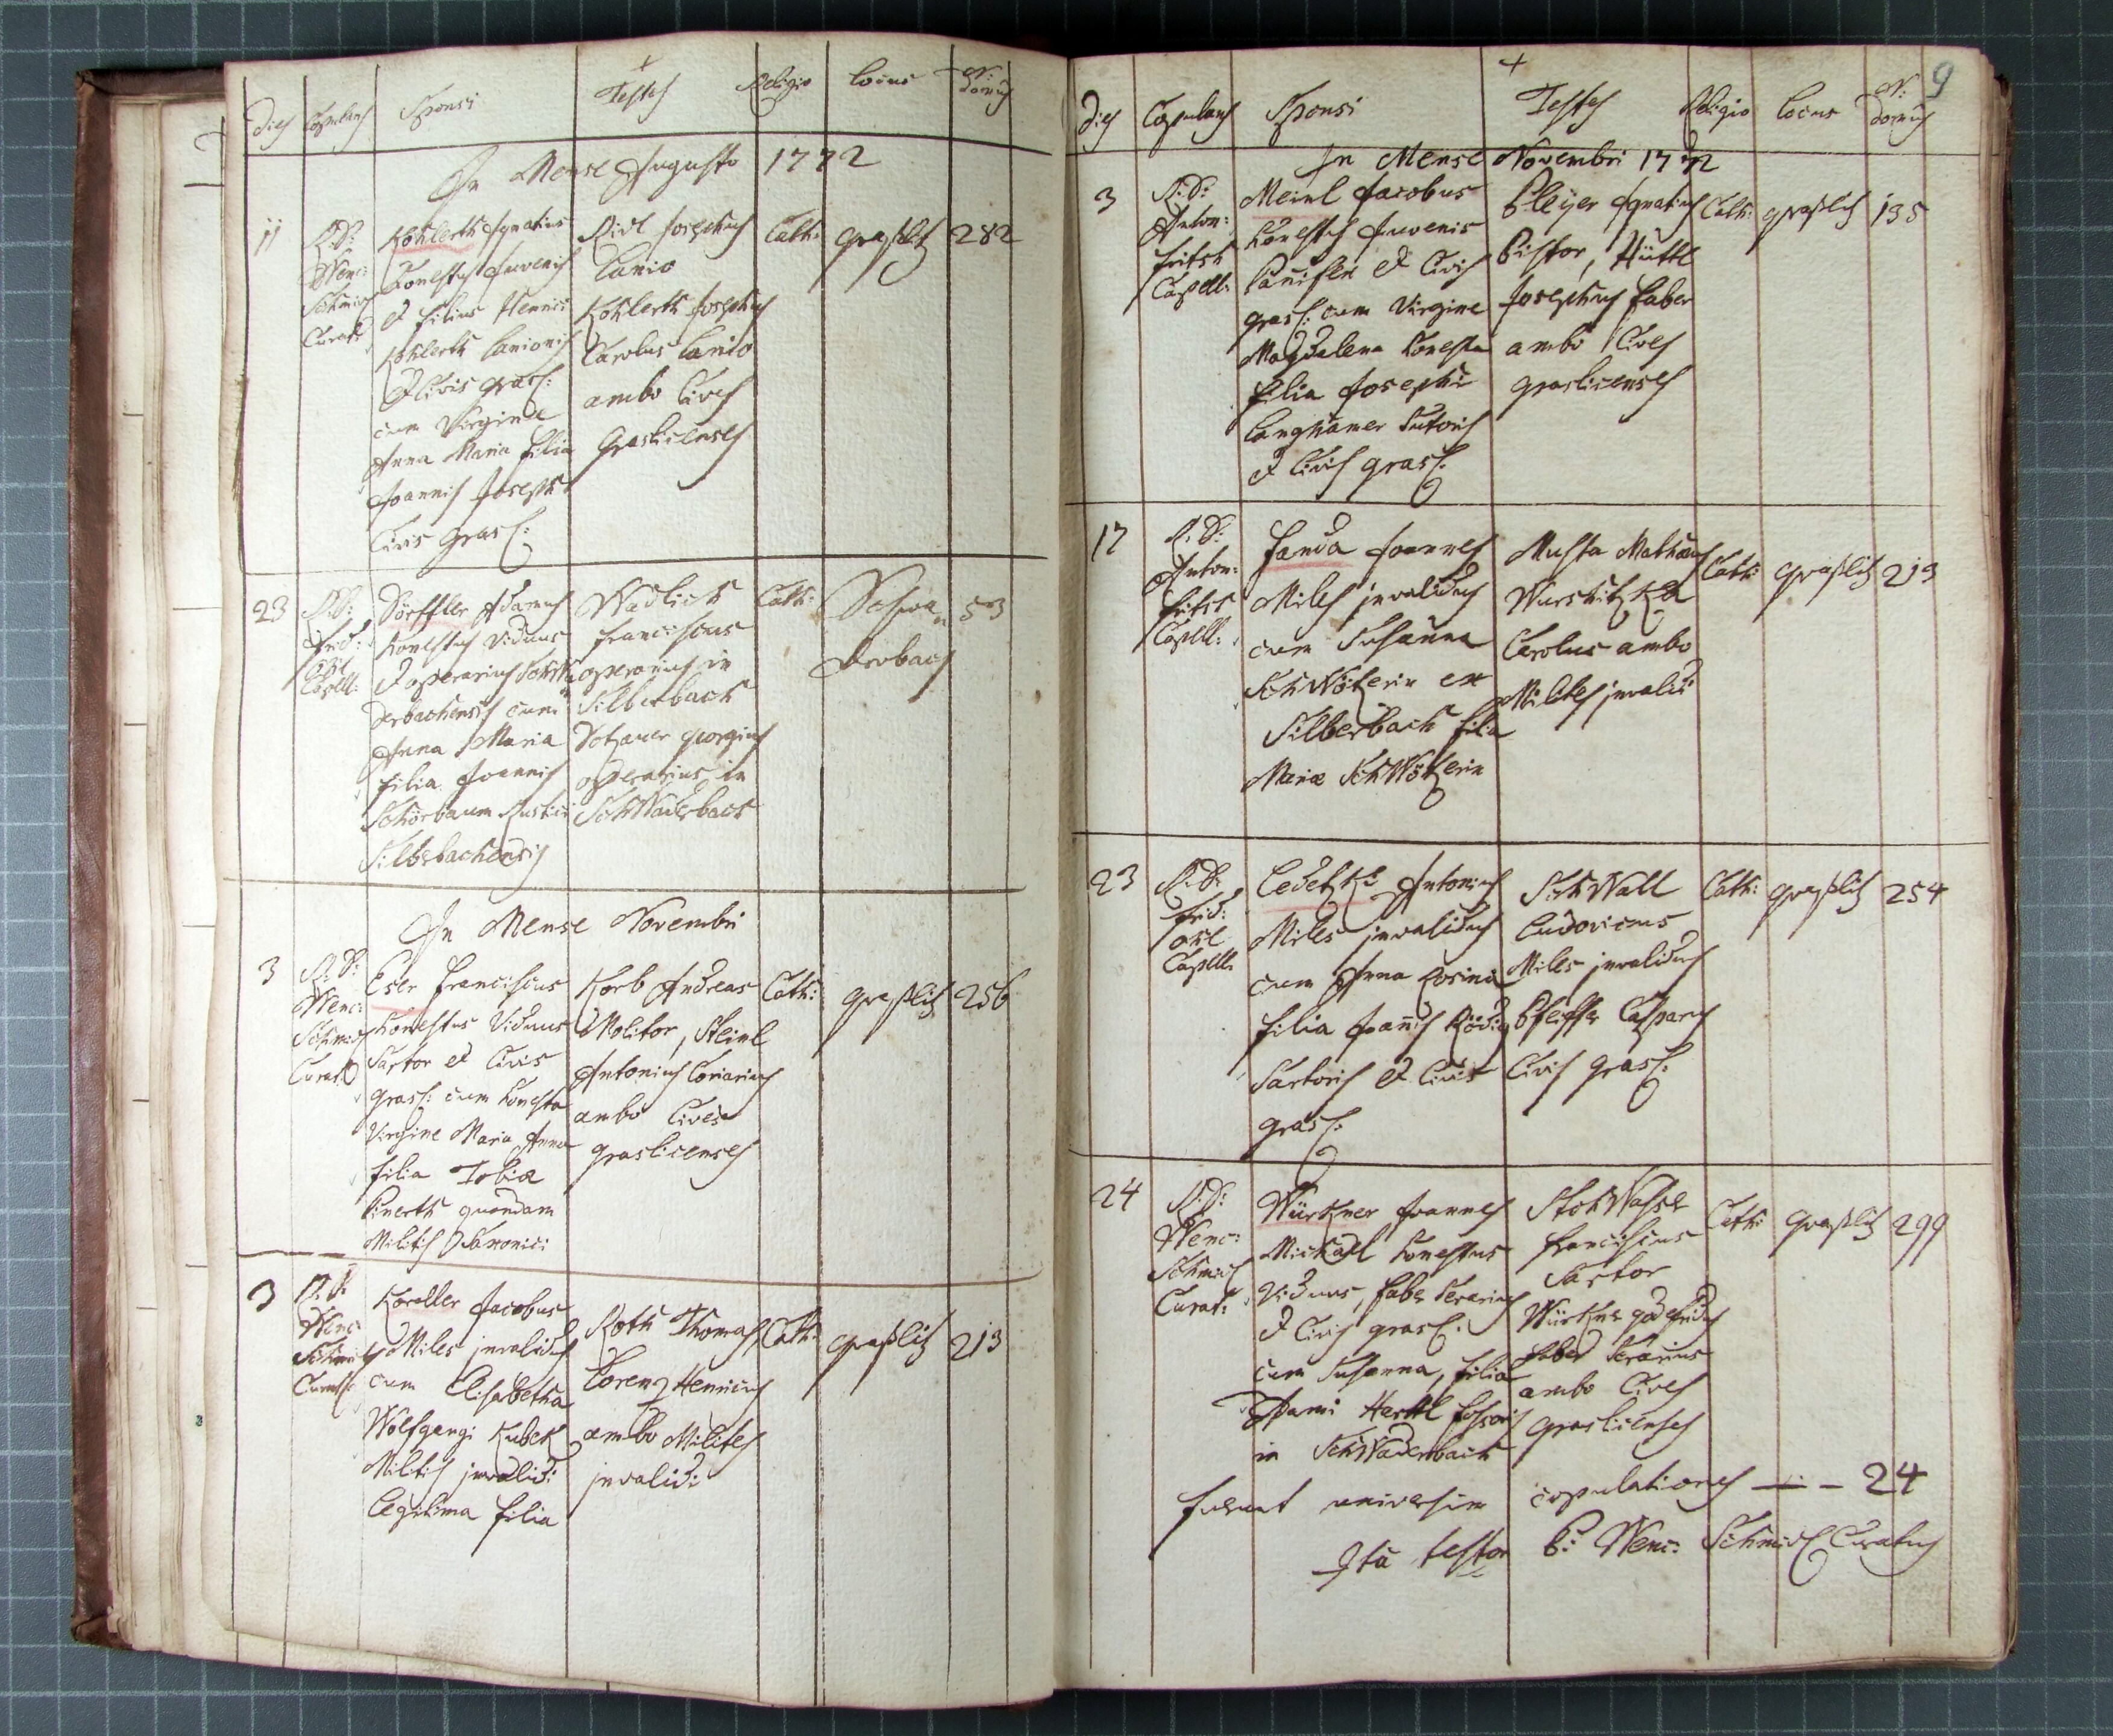 Dies Copulans Sponsi Testes Religio Locus Nr: Domus
In Mense Augusto 1772
11
R: D:
Wenc:
Schmid
Curat:
Kohlerth Ignatius
Honestus Juvenis
et filius Henrici
Kohlerth Lanionis
et Civis Grasl:
cum Virgine
Anna Maria filia
Joannis Joseph
Civis Grasl:
Riedl Josephus
Lanio
Kohlerth Josephus
Carolus Lanio
ambo Cives
Graslicenses
Cath: Graßlitz 282
23
R: D:
Frid:
Capell:
Dörffler Adamus
Honestus Viduus
et operarius Schwa
derbachensis cum
Anna Maria
filia Joannis
Schörbaum Rustici
Silberbachensis
Wadlich
Franciscus
operarius in
Silberbach
Dotzauer Georgius
operarius in
Schwaderbach
Cath: Schwa
derbach
53
In Mense Novembri
3
R: D:
Wenc:
Schmid
Curat:
Eser Franciscus
Honestus Viduus
Sartor et Civis
Grasl: cum Honesta
Virgine Maria Anna
filia Tobiæ
Linerth quondam
Militis Saxonici
Korb Andreas
Molitor, Steinl
Antonius Coriarius
ambo Cives
Graslicenses
Cath: Graßlitz 256
3
R: D:
Wenc:
Schmid
Curat:
Koreller Jacobus
Miles invalidus
cum Elisabetha
Wolfgangi Kubek
Militis invalidi
legitima filia
Roth Thomas
Lorenz Henricus
ambo Milites
invalidi
Cath: Graßlitz 213
9
Dies Copulans Sponsi Testes Religio Locus Nr: Domus
In Mense Novembri 1772
3
R: D:
Anton:
Fritsch
Capell:
Meinl Jacobus
Honestus Juvenis
Panifex et Civis
Grasl: cum Virgine
Magdalena Honesta
filia Josephi
Langhamer Sutoris
et Civis Grasl:
Pleyer Ignatius
Pistor, Hüttl
Josephus Faber
ambo Cives
Graslicenses
Cath: Graßlitz 135
17
R: D:
Anton:
Fritsch
Capell:
Janda Joannes
Miles invalidus
cum Susanna
Schwötzerin ex
Silberbach filia
Mariæ Schwötzerin
Muska Mathæus
Wurschitzka
Carolus ambo
Milites invalidi
Cath: Graßlitz 213
23
R: D:
Frid:
Capell:
Ledetzki Antonius
Miles invalidus
cum Anna Rosina
filia Joannis Rödig
Sartoris et Civis
Grasl:
Schwall
Ludovicus
Miles invalidus
Pfeiffer Casparus
Civis Grasl:
Cath: Graßlitz 254
24
R: D:
Wenc:
Schmid
Curat:
Würkner Joannes
Michael Honestus
Viduus, Faber Serarius
et Civis Grasl:
cum Susanna, filia
Adami Hertl fossoris
in Schwaderbach
Stohwasser
Franciscus
Sartor
Würkner Godefridus
Faber Serarius
ambo Cives
Graslicenses
Cath: Graßlitz 299
fuerunt universim copulationes — — 24
Ita testor P: Wenc: Schmid Curatus